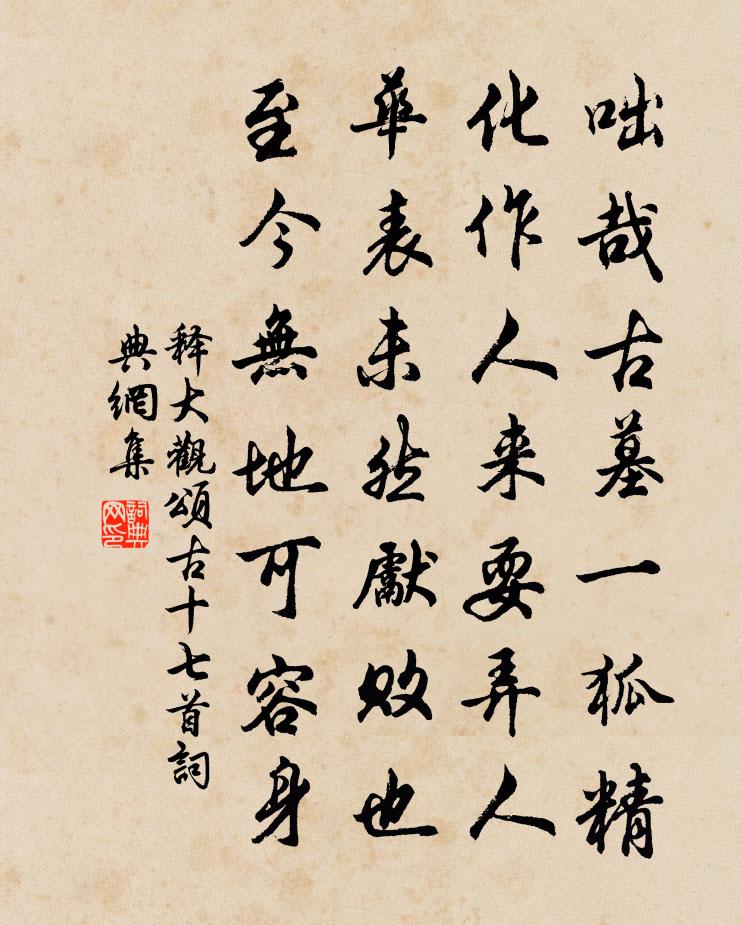 咄哉古墓一狐精
化作人来耍弄人
華表未然獻敗也
至今無地可容身
释大觀頌古十七首詞
典網集
詞典網印